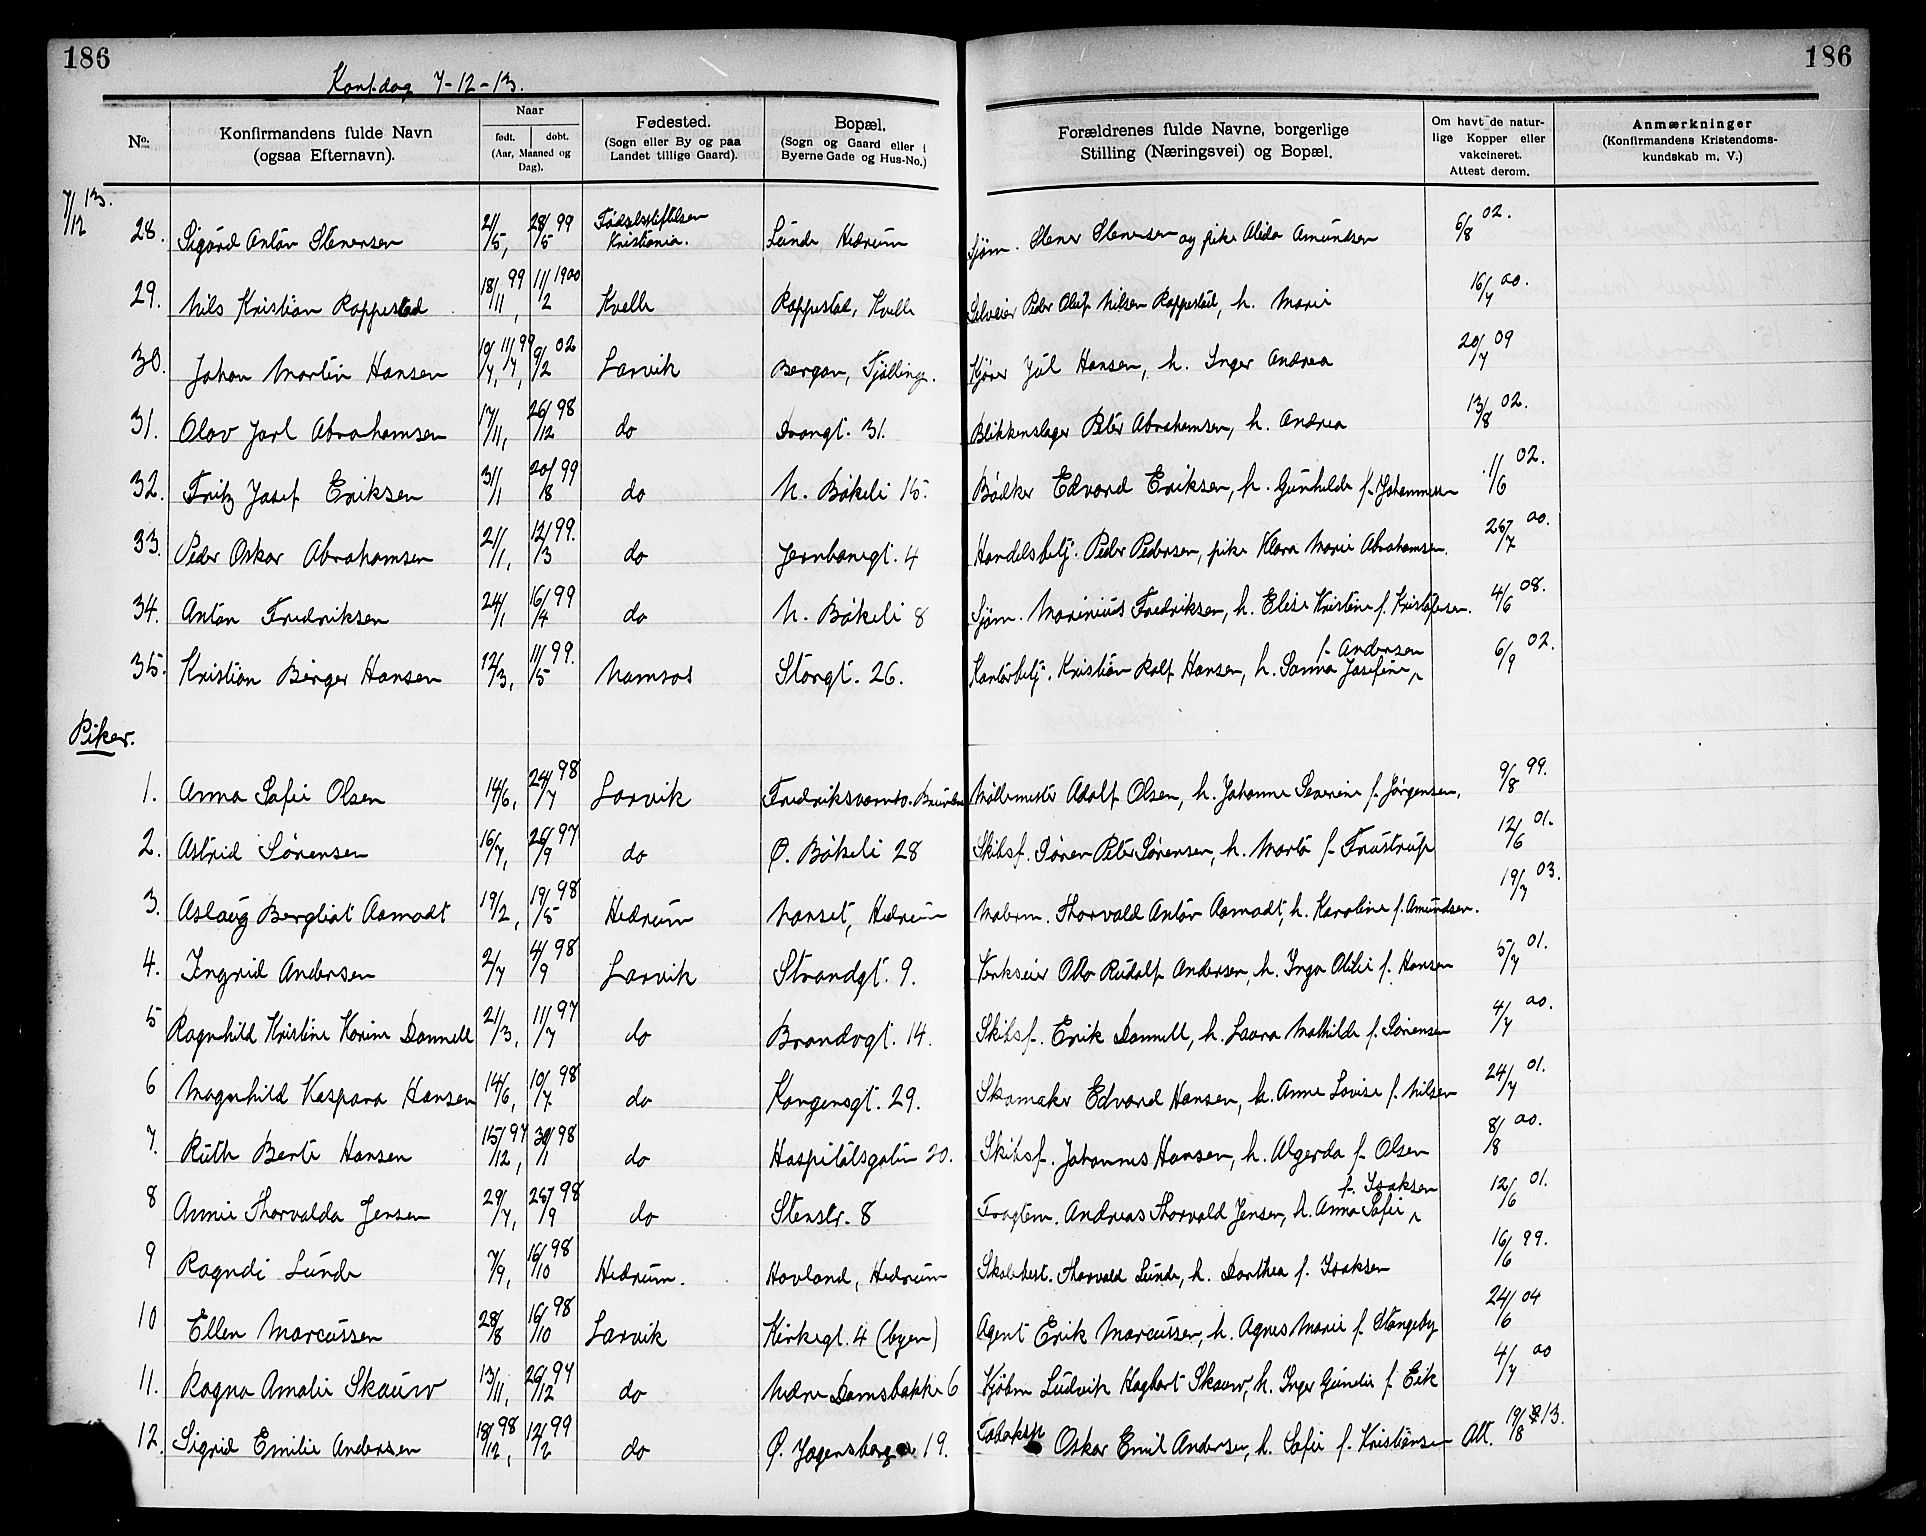 186
186
Konf.dag 7-12-13.
No.
Konfirmandens fulde Navn (ogsaa Efternavn).
Naar
født. døbt.
(Aar, Maaned og Dag).
Fødested.
(Sogn eller By og paa Landet tillige Gaard).
Bopæl.
(Sogn og Gaard eller i Byerne Gade og Hus-No.)
Forældrenes fulde Navne, borgerlige Stilling (Næringsvei) og Bopæl.
Om havt de naturlige Kopper eller vakcineret. Attest derom.
Anmærkninger
(Konfirmandens Kristendomskundskab m. V.)
7/12 13.
28. Sigurd Anton Stenersen 21/5, 28/5 99 Fødselsstiftelsen Kristiania. Lunde, Hedrum Sjøm. Stener Stenersen og pike Alida Amundsen 6/8 02.
29. Nils Kristian Rappestad 18/11 99, 11/2 1900 Kvelle Rappestad, Kvelle Selveier Peder Oluf Nilsen Rappestad, h. Marie 16/7 00.
30. Johan Martin Hansen 9/2 02 Larvik Bergan, Tjølling. Kjører Jul Hansen, h. Inger Andrea 20/7 09
31. Olav Jarl Abrahamsen 17/11, 26/12 98 do Dronngt. 31. Blikkenslager Peter Abrahamsen, h. Andrea 13/8 02.
32. Fritz Josef Eriksen 31/1 20/8 99 do N. Bökeli 15. Bødker Edvard Eriksen, h. Gunhilde f. Johannessen 1/6 02.
33. Peder Oskar Abrahamsen 21/1, 12/3 99. do Jernbanegt. 4 Handelsbetj. Peder Pedersen, pike Klara Marie Abrahamsen. 26/7 00.
34. Anton Fredriksen 24/1 16/4 99 do N. Bökeli 8 Sjøm. Marinius Fredriksen, h. Elise Kristine f. Kristofersen. 4/6 08.
35. Kristian Birger Hansen 12/3, 11/5 99. Namsos Storgt. 26. Kontorbetj. Kristian Rolf Hansen, h. Sanna Josefine f. Andersen 6/9 02.
Piker.
1. Anna Sofie Olsen 14/6, 24/7 98 Larvik Fredriksværnsv. Møllemester Adolf Olsen, h. Johanne Severine f. Jørgensen. 9/8 99.
2. Astrid Sørensen 16/7, 26/9 97 do Ø. Bökeli 28 Skibsf. Søren Peter Sørensen, h. Marta f. Frustrup 12/6 01.
3. Aslaug Bergliot Aamodt 19/2, 19/5 98 Hedrum Nanset, Hedrum Malerm. Thorvald Anton Aamodt, h. Karoline f. Amundsen. 19/7 03.
4. Ingrid Andersen 2/7 4/9 98 Larvik Strandgt. 9. Verkseier Otto Rudolf Andersen, h. Inga Otilie f. Hansen 5/7 01.
5 Ragnhild Kristine Karine Dannell 21/3, 11/7 97 do Brandvgt. 14. Skibsf. Erik Dannell, h. Laura Mathilde f. Sørensen 4/7 00.
6 Magnhild Kaspara Hansen 14/6, 10/7 98 do Kongensgt. 29. Skomaker Edvard Hansen, h. Anne Lovise f. Nilsen 24/7 01.
7. Ruth Berte Hansen 15/12 97, 30/1 98 do Hospitalsgaten 20. Skibsf. Johannes Hansen, h. Algerda f. Olsen 8/8 00.
8 Annie Thorvalda Jensen 29/7, 25/9 98 do Stenstr. 8 Fragtem. Andreas Thorvald Jensen, h. Anna Sofie f. Isaksen 12/6 01.
9 Ragndi Lunde 7/9, 16/10 98 Hedrum. Hovland, Hedrum Skolebest. Thorvald Lunde, h. Dorthea f. Isaksen 16/6 99.
10 Ellen Marcussen 28/8 16/10 98 Larvik Kirkegt. 4 (byen) Agent Erik Marcussen, h. Agnes Marie f. Stangeby 24/6 04
11. Ragna Amalie Skauw 13/11, 26/12 97 do Nedre Damsbakke 6 Kjøbm Ludvik Hagbart Skauw, h. Inger Gundia f. Eik 4/7 00
12. Sigrid Emilie Andersen 18/12 98, 12/2 99 do Ø. Jegersborg 19. Oskar Emil Andersen, h. Sofie f. Kristiansen Att. 19/8 13.